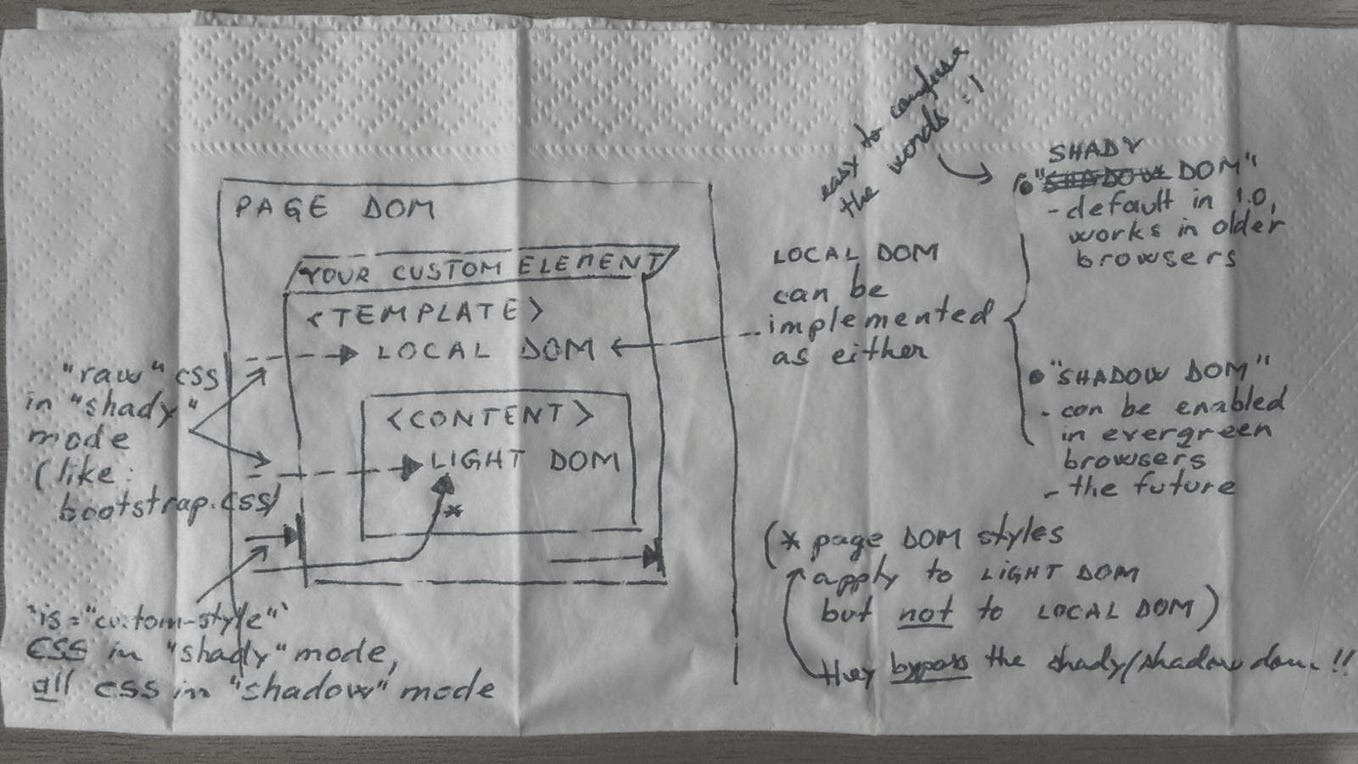 easy to confuse
the words :/
SHADY
"SHADOW DOM"
- default in 1.0,
works in older
browsers
PAGE DOM
YOUR CUSTOM ELEMENT
<TEMPLATE>
LOCAL DOM
<CONTENT>
LIGHT DOM
*
LOCAL DOM
can be
implemented
as either
"SHADOW DOM"
- can be enabled
in evergreen
browsers
- the future
"raw" css
in "shady"
mode
(like:
bootstrap.css)
(* page DOM styles
apply to LIGHT DOM
but not to LOCAL DOM)
they bypass the shady/shadow dom!!
`is="custom-style"`
CSS in "shady" mode,
all css in "shadow" mode